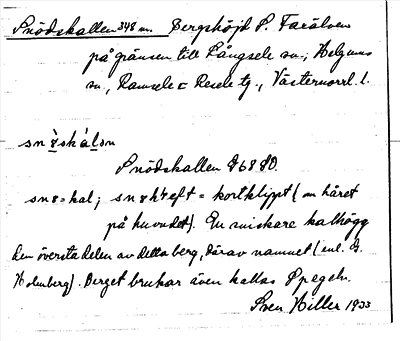 Snödskallen 348 m. Bergshöjd S. Faxälven
på gränsen till Långsele sn, Helgums
sn, Ramsele o Resele tg., Västernorrl. l.
Snödskallen
kal; kortklippt (om håret
på huvudet). En smiskare kalhögg
den översta delen av detta berg, därav namnet (enl.
Holmberg). Berget brukar även kallas
Sven Hiller 1933